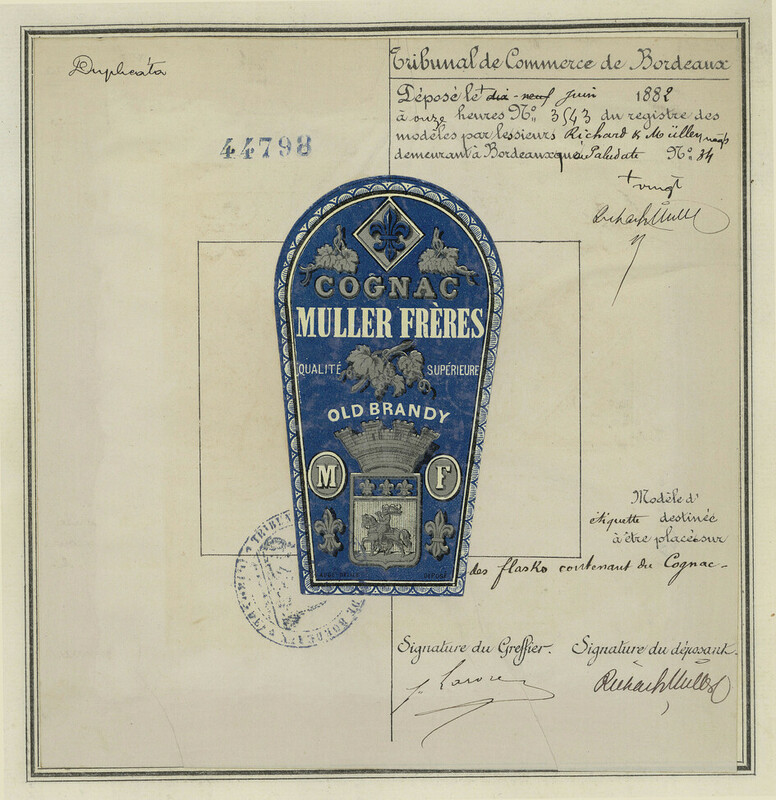 Duplicata
44798
Tribunal de Commerce de Bordeaux
Déposé le dix-neuf Juin 1882
à onze heures No. 3543 du registre des
modèles par lessieurs Richard & Müller négts
demeurant à Bordeaux quai Paludate No. 34
+ vingt
Richard & Müller
COGNAC
MULLER FRÈRES
QUALITÉ SUPÉRIEURE
OLD BRANDY
M F
DÉPOSÉ
Modèle d'
étiquette destinée
à être placée sur
des flasks contenant du Cognac-
TRIBUN
DE BORDEAUX
Signature du Greffier. Signature du déposant.
Richard & Müller